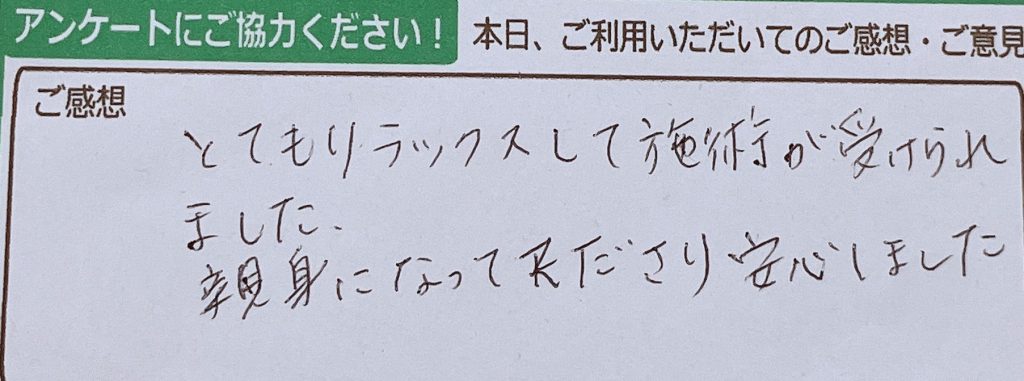 アンケートにご協力ください！ 本日、ご利用いただいてのご感想・ご意見
ご感想
とてもリラックスして施術が受けられ
ました、
親身になって下ださり安心しました